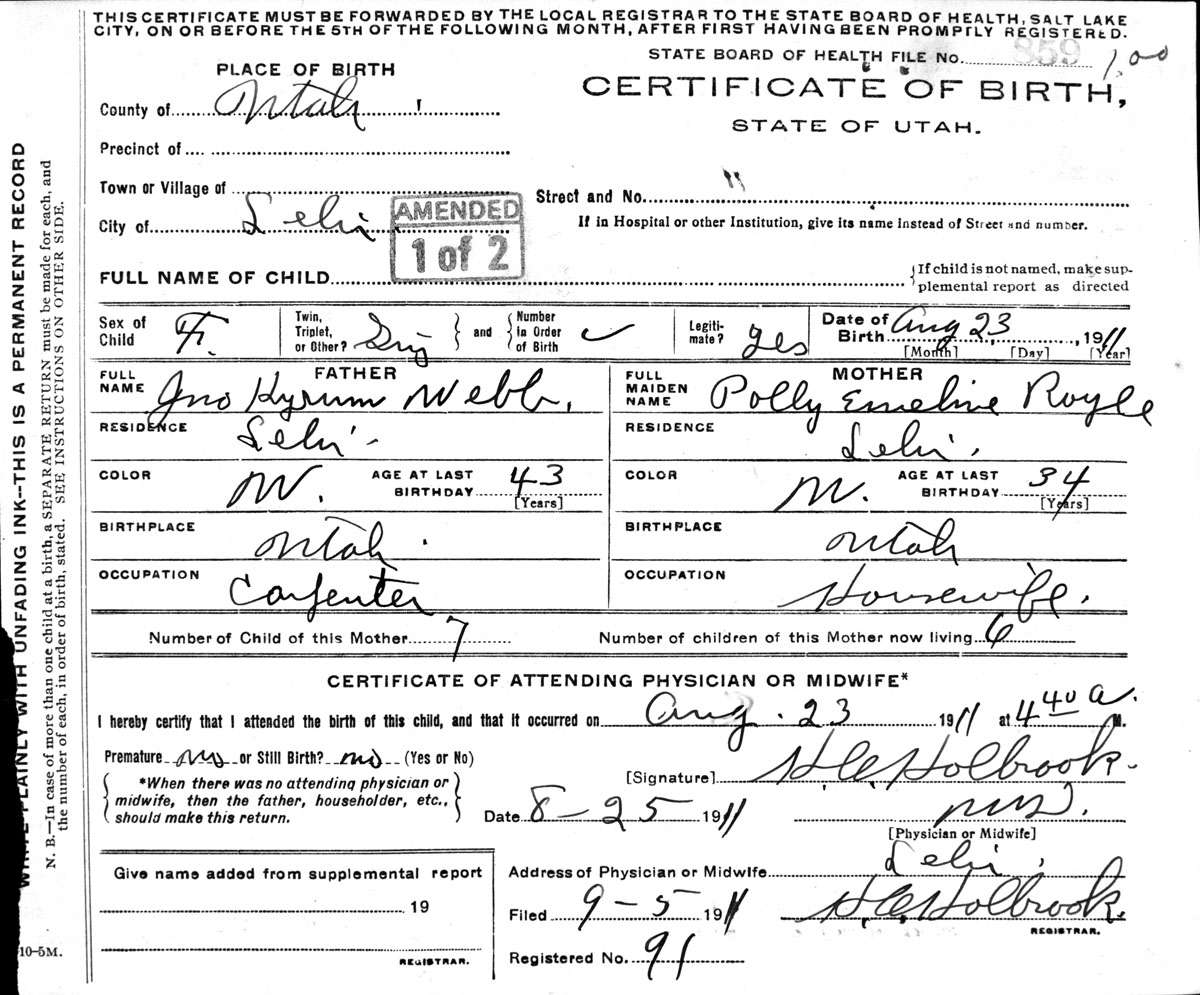 THIS CERTIFICATE MUST BE FORWARDED BY THE LOCAL REGISTRAR TO THE STATE BOARD OF HEALTH, SALT LAKE
CITY, ON OR BEFORE THE 5TH OF THE FOLLOWING MONTH, AFTER FIRST HAVING BEEN PROMPTLY REGISTERED.
STATE BOARD OF HEALTH FILE No. 859 1.00
PLACE OF BIRTH
CERTIFICATE OF BIRTH,
County of Utah
STATE OF UTAH.
Precinct of
Town or Village of
Street and No.
City of Lehi
AMENDED
1 of 2
If in Hospital or other Institution, give its name instead of Street and number.
FULL NAME OF CHILD
If child is not named, make sup-
plemental report as directed
Sex of Child F. Twin, Triplet, or Other? Sing and Number in Order of Birth Legiti-mate? yes Date of Birth Aug 23, 1911
[Month] [Day] [Year]
FATHER
FULL NAME Jno Hyrum Webb.
MOTHER
FULL MAIDEN NAME Polly Emeline Royle
RESIDENCE Lehi
RESIDENCE Lehi.
COLOR W. AGE AT LAST BIRTHDAY 43
[Years]
COLOR W. AGE AT LAST BIRTHDAY 34
[Years]
BIRTHPLACE Utah.
BIRTHPLACE Utah
OCCUPATION Carpenter
OCCUPATION Housewife.
Number of Child of this Mother 7 Number of children of this Mother now living 6
CERTIFICATE OF ATTENDING PHYSICIAN OR MIDWIFE*
I hereby certify that I attended the birth of this child, and that it occurred on Aug. 23 1911 at 4 40 a. M.
Premature no or Still Birth? no (Yes or No)
[Signature] H C Holbrook.
*When there was no attending physician or
midwife, then the father, householder, etc.,
should make this return.
Date 8-25 1911
M.D.
[Physician or Midwife]
Give name added from supplemental report
19
REGISTRAR.
Address of Physician or Midwife Lehi.
Filed 9-5 1911 H.C. Holbrook.
REGISTRAR.
Registered No. 91
WRITE PLAINLY WITH UNFADING INK--THIS IS A PERMANENT RECORD
N. B.—In case of more than one child at a birth, a SEPARATE RETURN must be made for each, and
the number of each, in order of birth, stated. SEE INSTRUCTIONS ON OTHER SIDE.
10-5M.